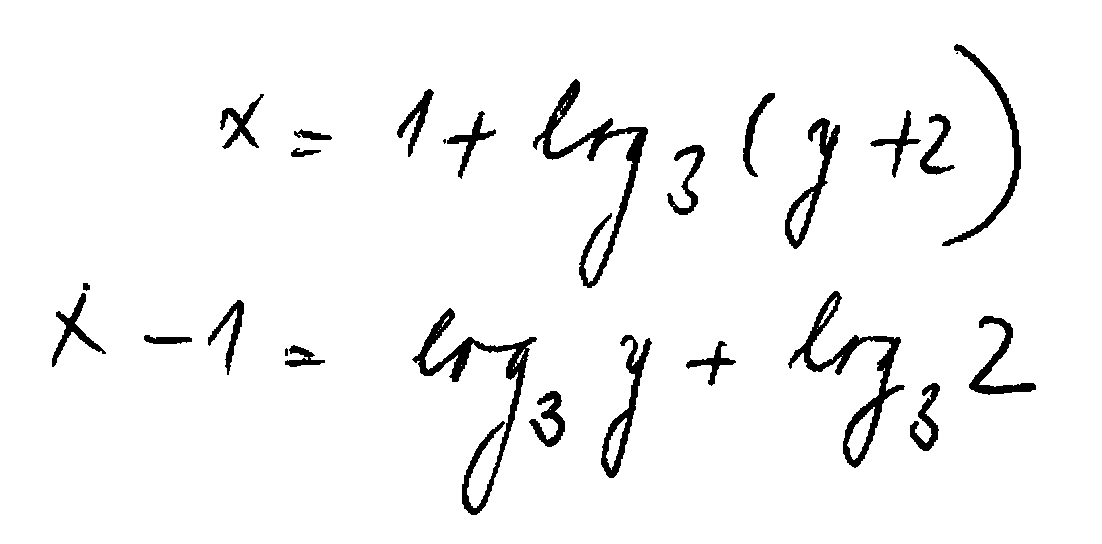 x = 1 + log₃(y+2)
x − 1 = log₃ y + log₃ 2